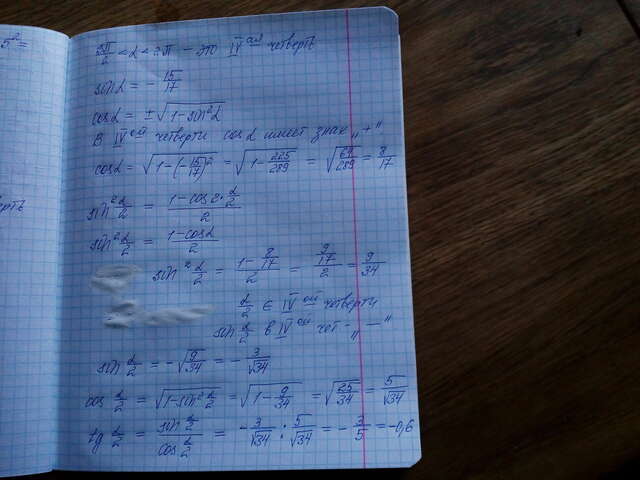 5² =
3π/2 < α < 2π - это IV ая четверть
sinα = - 15/17
cosα = ±√(1-sin²α)
В IV ой четверти cosα имеет знак „+"
cosα = √(1-(-15/17)²) = √(1-225/289) = √(64/289) = 8/17
sin² α/2 = (1-cos2·α/2)/2
sin² α/2 = (1-cosα)/2
sin² α/2 = (1-8/17)/2 = (9/17)/2 = 9/34
α/2 ∈ IV ой четверти
sin α/2 в IV ой чет- „—"
sin α/2 = -√(9/34) = - 3/√34
cos α/2 = √(1-sin² α/2) = √(1-9/34) = √(25/34) = 5/√34
tg α/2 = (sin α/2)/(cos α/2) = - 3/√34 : 5/√34 = - 3/5 = -0,6